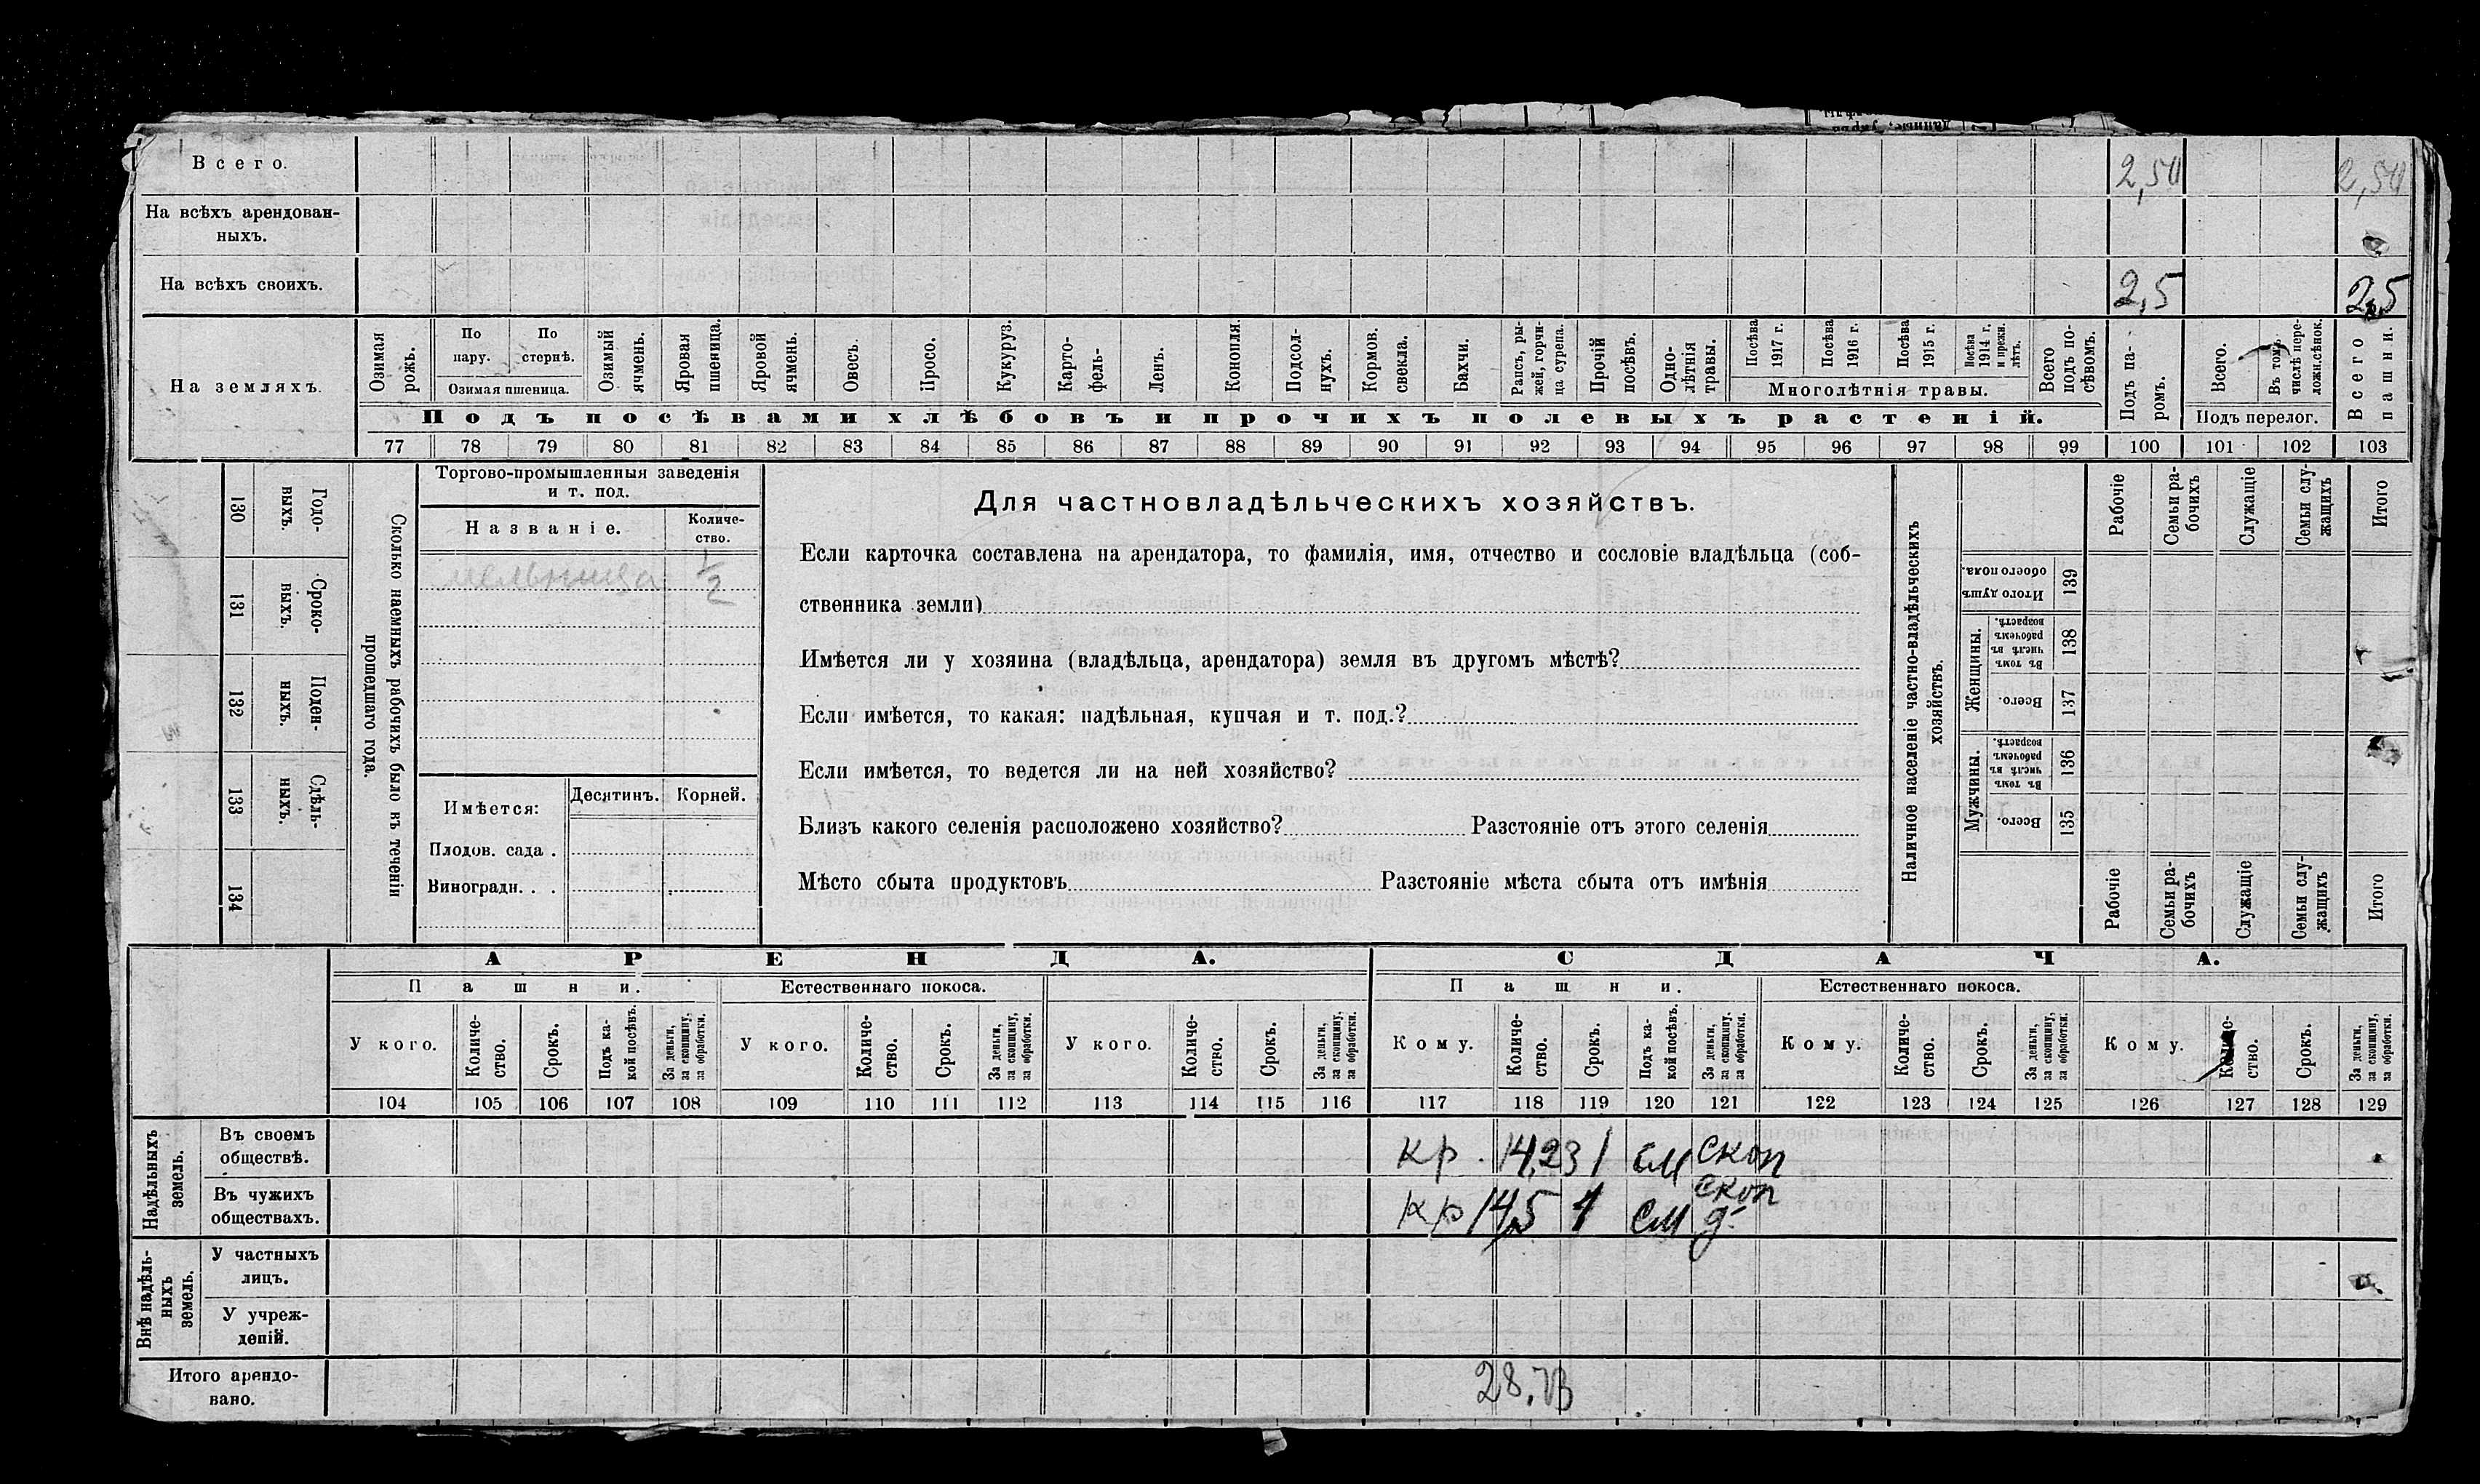 Всего. 2,50 2,50
На всѣхъ арендован-
ныхъ.
На всѣхъ своихъ. 2,5 2,5
На земляхъ.
Озимая рожь.
По пару.
По стернѣ.
Озимая пшеница.
Озимый ячмень.
Яровая пшеница.
Яровой ячмень.
Овесъ.
Просо.
Кукуруз.
Карто-
фель-
Ленъ.
Конопля.
Подсол-
нухъ.
Кормов. свекла.
Бахчи.
Рапсъ, ры-
жей, горчи-
ца сурепа.
Прочій посѣвъ.
Одно-
лѣтнія травы.
Посѣва 1917 г.
Посѣва 1916 г.
Посѣва 1915 г.
Посѣва 1914 г. и прежн. лѣтъ.
Многолѣтнія травы.
Всего подъ по-
сѣвомъ.
Подъ па-
ромъ.
Всего.
Въ томъ числѣ пере-
ложн.сѣнок.
Подъ перелог.
Всего пашни.
Подъ посѣвами хлѣбовъ и прочихъ полевыхъ растеній.
77 78 79 80 81 82 83 84 85 86 87 88 89 90 91 92 93 94 95 96 97 98 99 100 101 102 103
130 Годо-
выхъ.
131 Сроко-
выхъ.
132 Поден-
ныхъ.
133 Сдѣль-
ныхъ.
134
Сколько наемныхъ рабочихъ было въ теченіи
прошедшаго года.
Торгово-промышленныя заведенія
и т. под.
Названіе.
Количе-
ство.
мельница 1/2
Имѣется:
Десятинъ. Корней.
Плодов. сада .
Виноградн. . .
Для частновладѣльческихъ хозяйствъ.
Если карточка составлена на арендатора, то фамилія, имя, отчество и сословіе владѣльца (соб-
ственника земли)
Имѣется ли у хозяина (владѣльца, арендатора) земля въ другомъ мѣстѣ?
Если имѣется, то какая: надѣльная, купчая и т. под.?
Если имѣется, то ведется ли на ней хозяйство?
Близъ какого селенія расположено хозяйство? Разстояніе отъ этого селенія
Мѣсто сбыта продуктовъ Разстояніе мѣста сбыта отъ имѣнія
Наличное населеніе частно-владѣльческихъ
хозяйствъ.
Рабочіе
Семьи ра-
бочихъ
Служащіе
Семьи слу-
жащихъ
Итого
Итого душъ обоего пола. 139
Женщины.
Въ томъ числѣ въ рабочемъ возрастѣ. 138
Всего. 137
Мужчины.
Въ томъ числѣ въ рабочемъ возрастѣ. 136
Всего. 135
Рабочіе
Семьи ра-
бочихъ
Служащіе
Семьи слу-
жащихъ
Итого
АРЕНДА. СДАЧА.
Пашни. Естественнаго покоса. Пашни. Естественнаго покоса.
У кого.
Количе-
ство.
Срокъ.
Подъ ка-
кой посѣвъ.
За деньги,
за скопщину,
за обработки.
У кого.
Количе-
ство.
Срокъ.
За деньги,
за скопщину,
за обработки.
У кого.
Количе-
ство.
Срокъ.
За деньги,
за скопщину,
за обработки.
Кому.
Количе-
ство.
Срокъ.
Подъ ка-
кой посѣвъ.
За деньги,
за скопщину.
за обработки.
Кому.
Количе-
ство.
Срокъ.
За деньги,
за скопщину,
за обработки.
Кому.
Количе-
ство.
Срокъ.
За деньги,
за скопщину,
за обработки.
104 105 106 107 108 109 110 111 112 113 114 115 116 117 118 119 120 121 122 123 124 125 126 127 128 129
Надѣльныхъ
земель.
Въ своемъ
обществѣ.
кр. 14,23 1 см скоп
Въ чужихъ
обществахъ.
скоп
кр 14,5 1 см д.
Внѣ надѣль-
ныхъ
земель.
У частныхъ
лицъ.
У учреж-
деній.
Итого арендо-
вано.
28,73